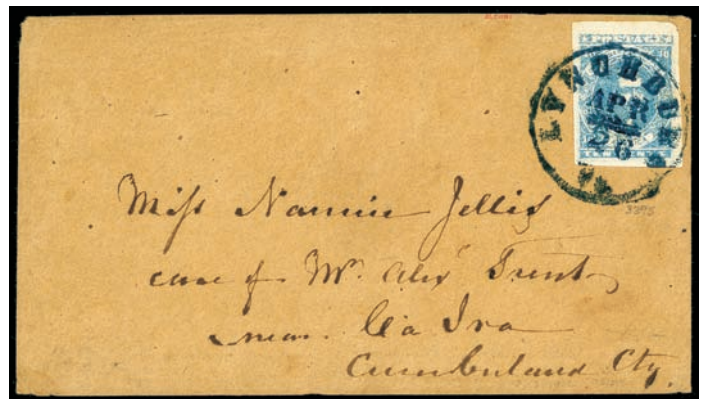 POSTAGE
LYNCHBURG
APR
26
Va
TEN CENTS
3395
Miss Nannie Jellis
care of Mr. Alex Trent
near Ca Ira
Cumberland Cty.